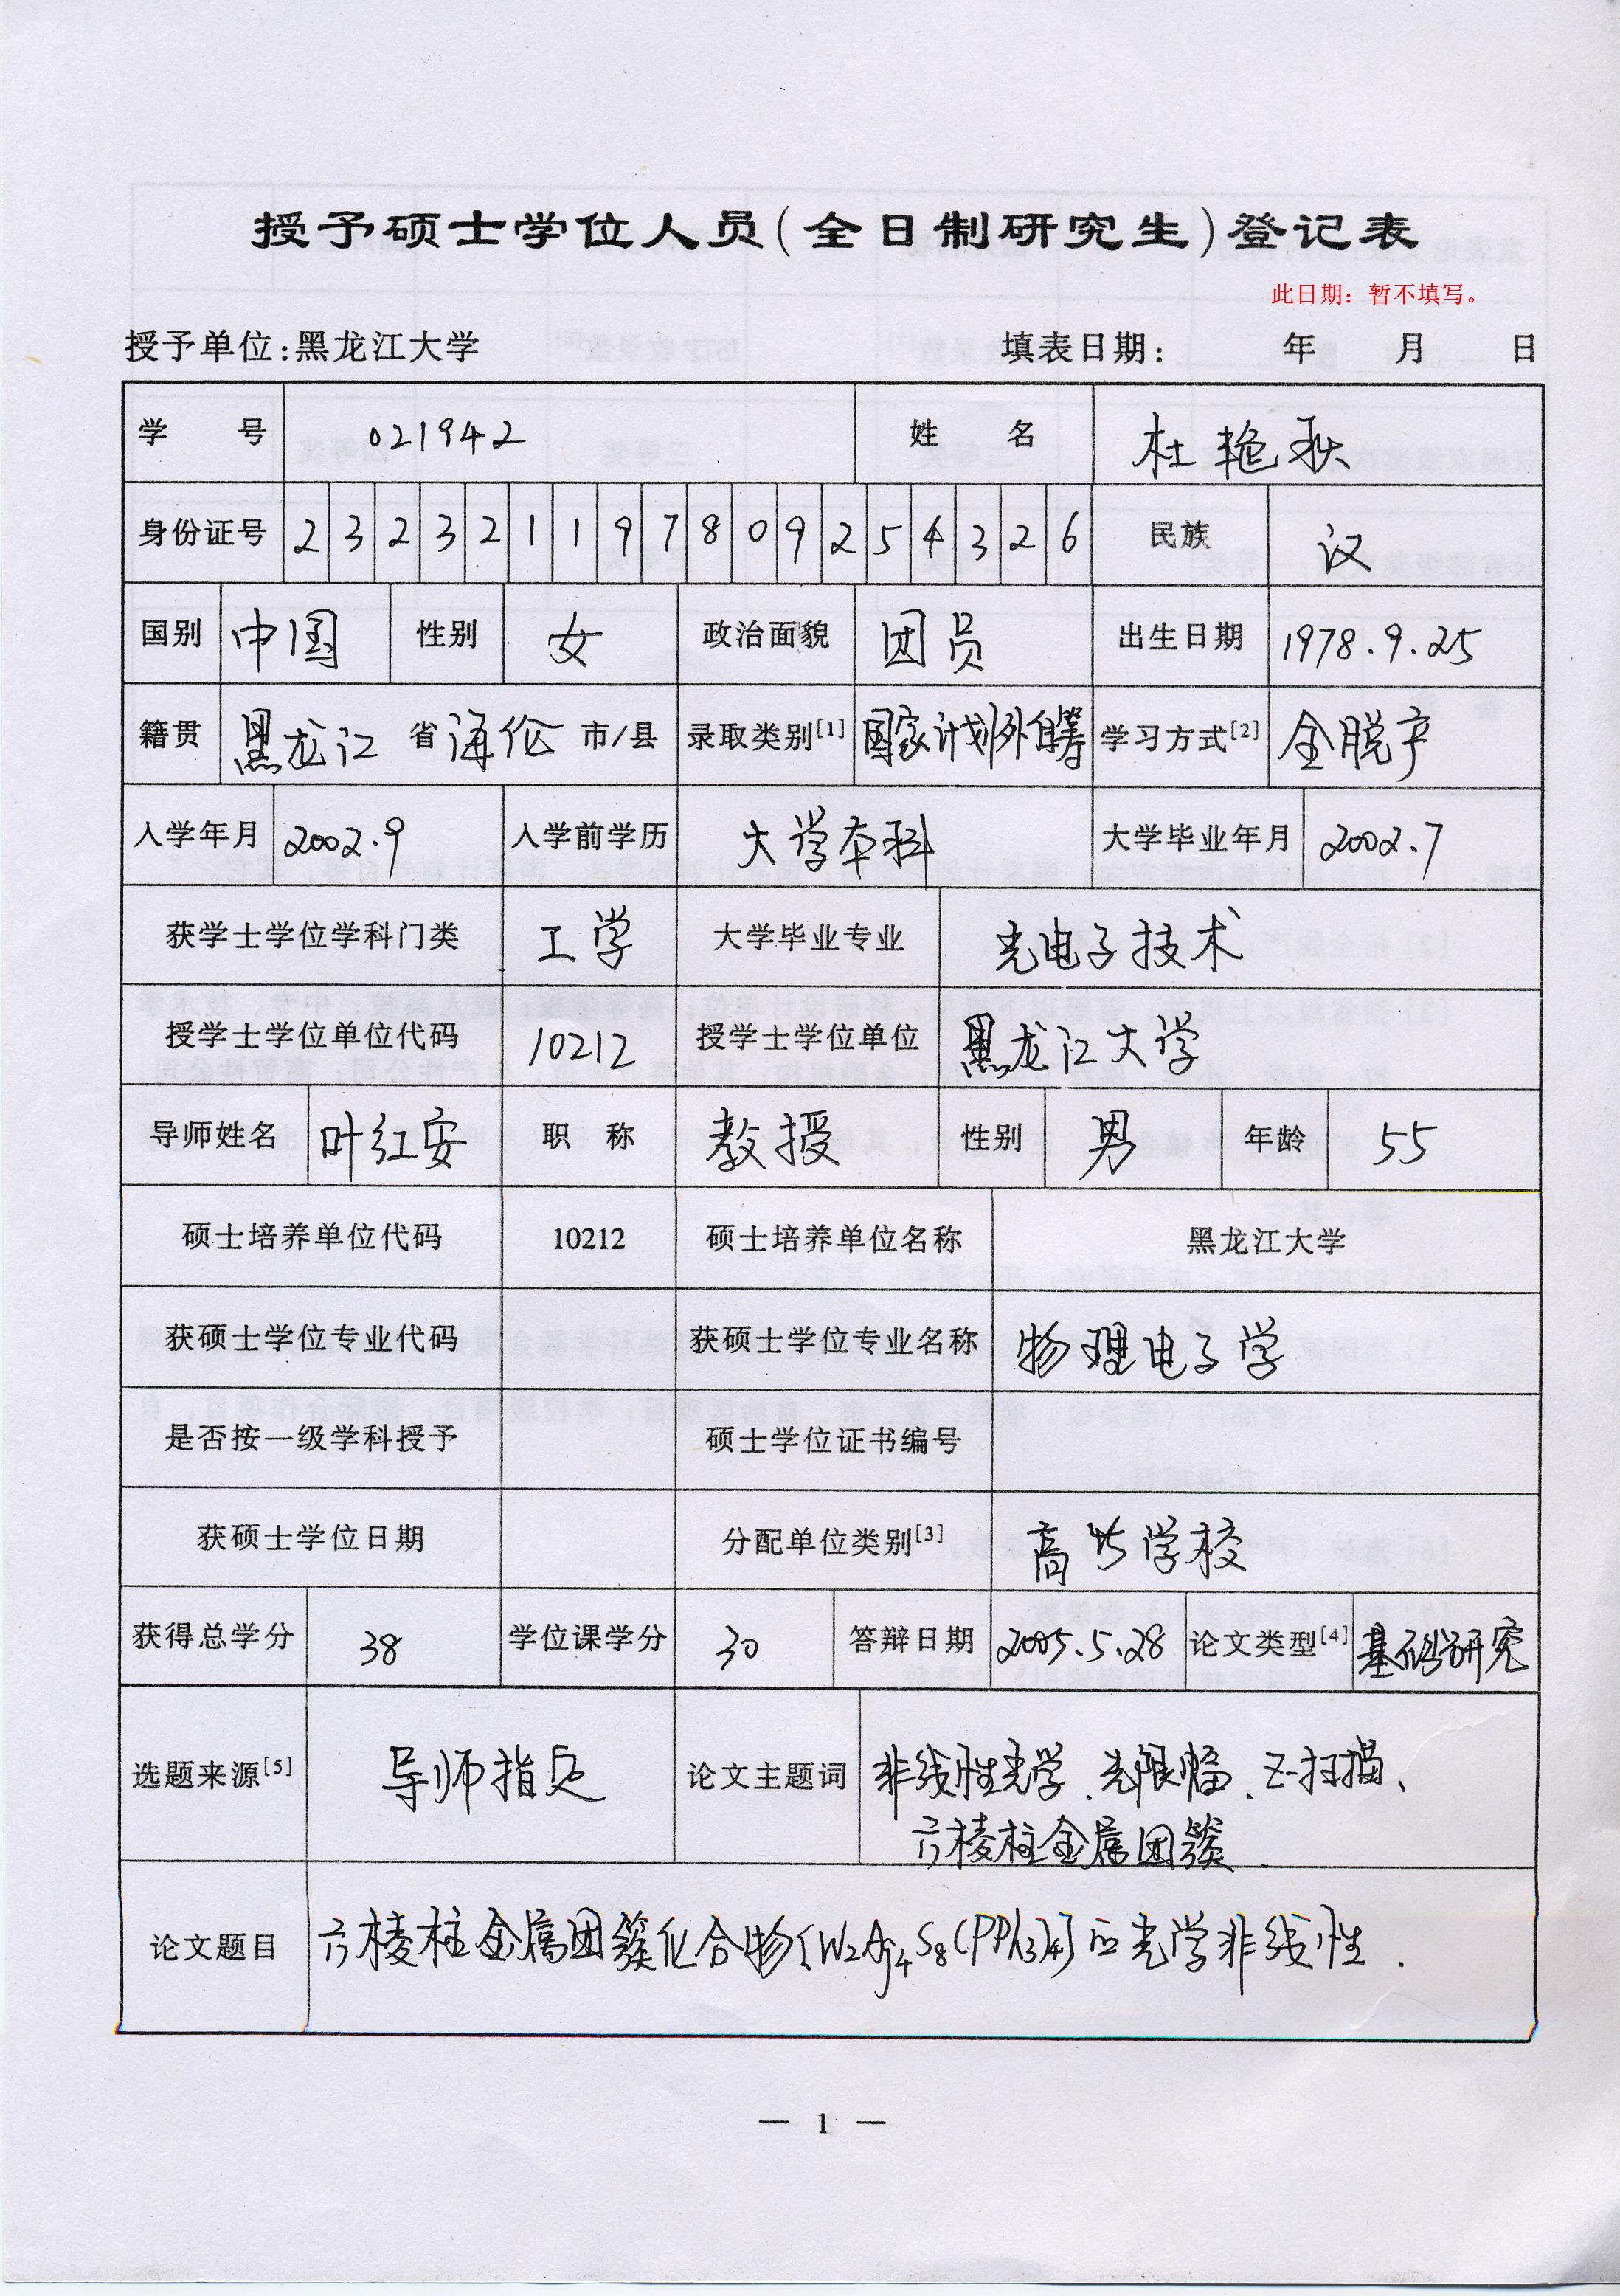 授予硕士学位人员(全日制研究生)登记表
此日期：暂不填写。
授予单位:黑龙江大学 填表日期: 年 月 日
学 号 021942 姓 名 杜艳秋
身份证号 232321197809254326 民族 汉
国别 中国 性别 女 政治面貌 团员 出生日期 1978.9.25
籍贯 黑龙江 省 海伦 市/县 录取类别[1] 国家计划外自筹 学习方式[2] 全脱产
入学年月 2002.9 入学前学历 大学本科 大学毕业年月 2002.7
获学士学位学科门类 工学 大学毕业专业 光电子技术
授学士学位单位代码 10212 授学士学位单位 黑龙江大学
导师姓名 叶红安 职 称 教授 性别 男 年龄 55
硕士培养单位代码 10212 硕士培养单位名称 黑龙江大学
获硕士学位专业代码 获硕士学位专业名称 物理电子学
是否按一级学科授予 硕士学位证书编号
获硕士学位日期 分配单位类别[3] 高等学校
获得总学分 38 学位课学分 30 答辩日期 2005.5.28 论文类型[4] 基础研究
选题来源[5] 导师指定 论文主题词 非线性光学、光限幅、Z-扫描、
六棱柱金属团簇
论文题目 六棱柱金属团簇化合物[W2Ag4S8(PPh3)4]的光学非线性.
— 1 —